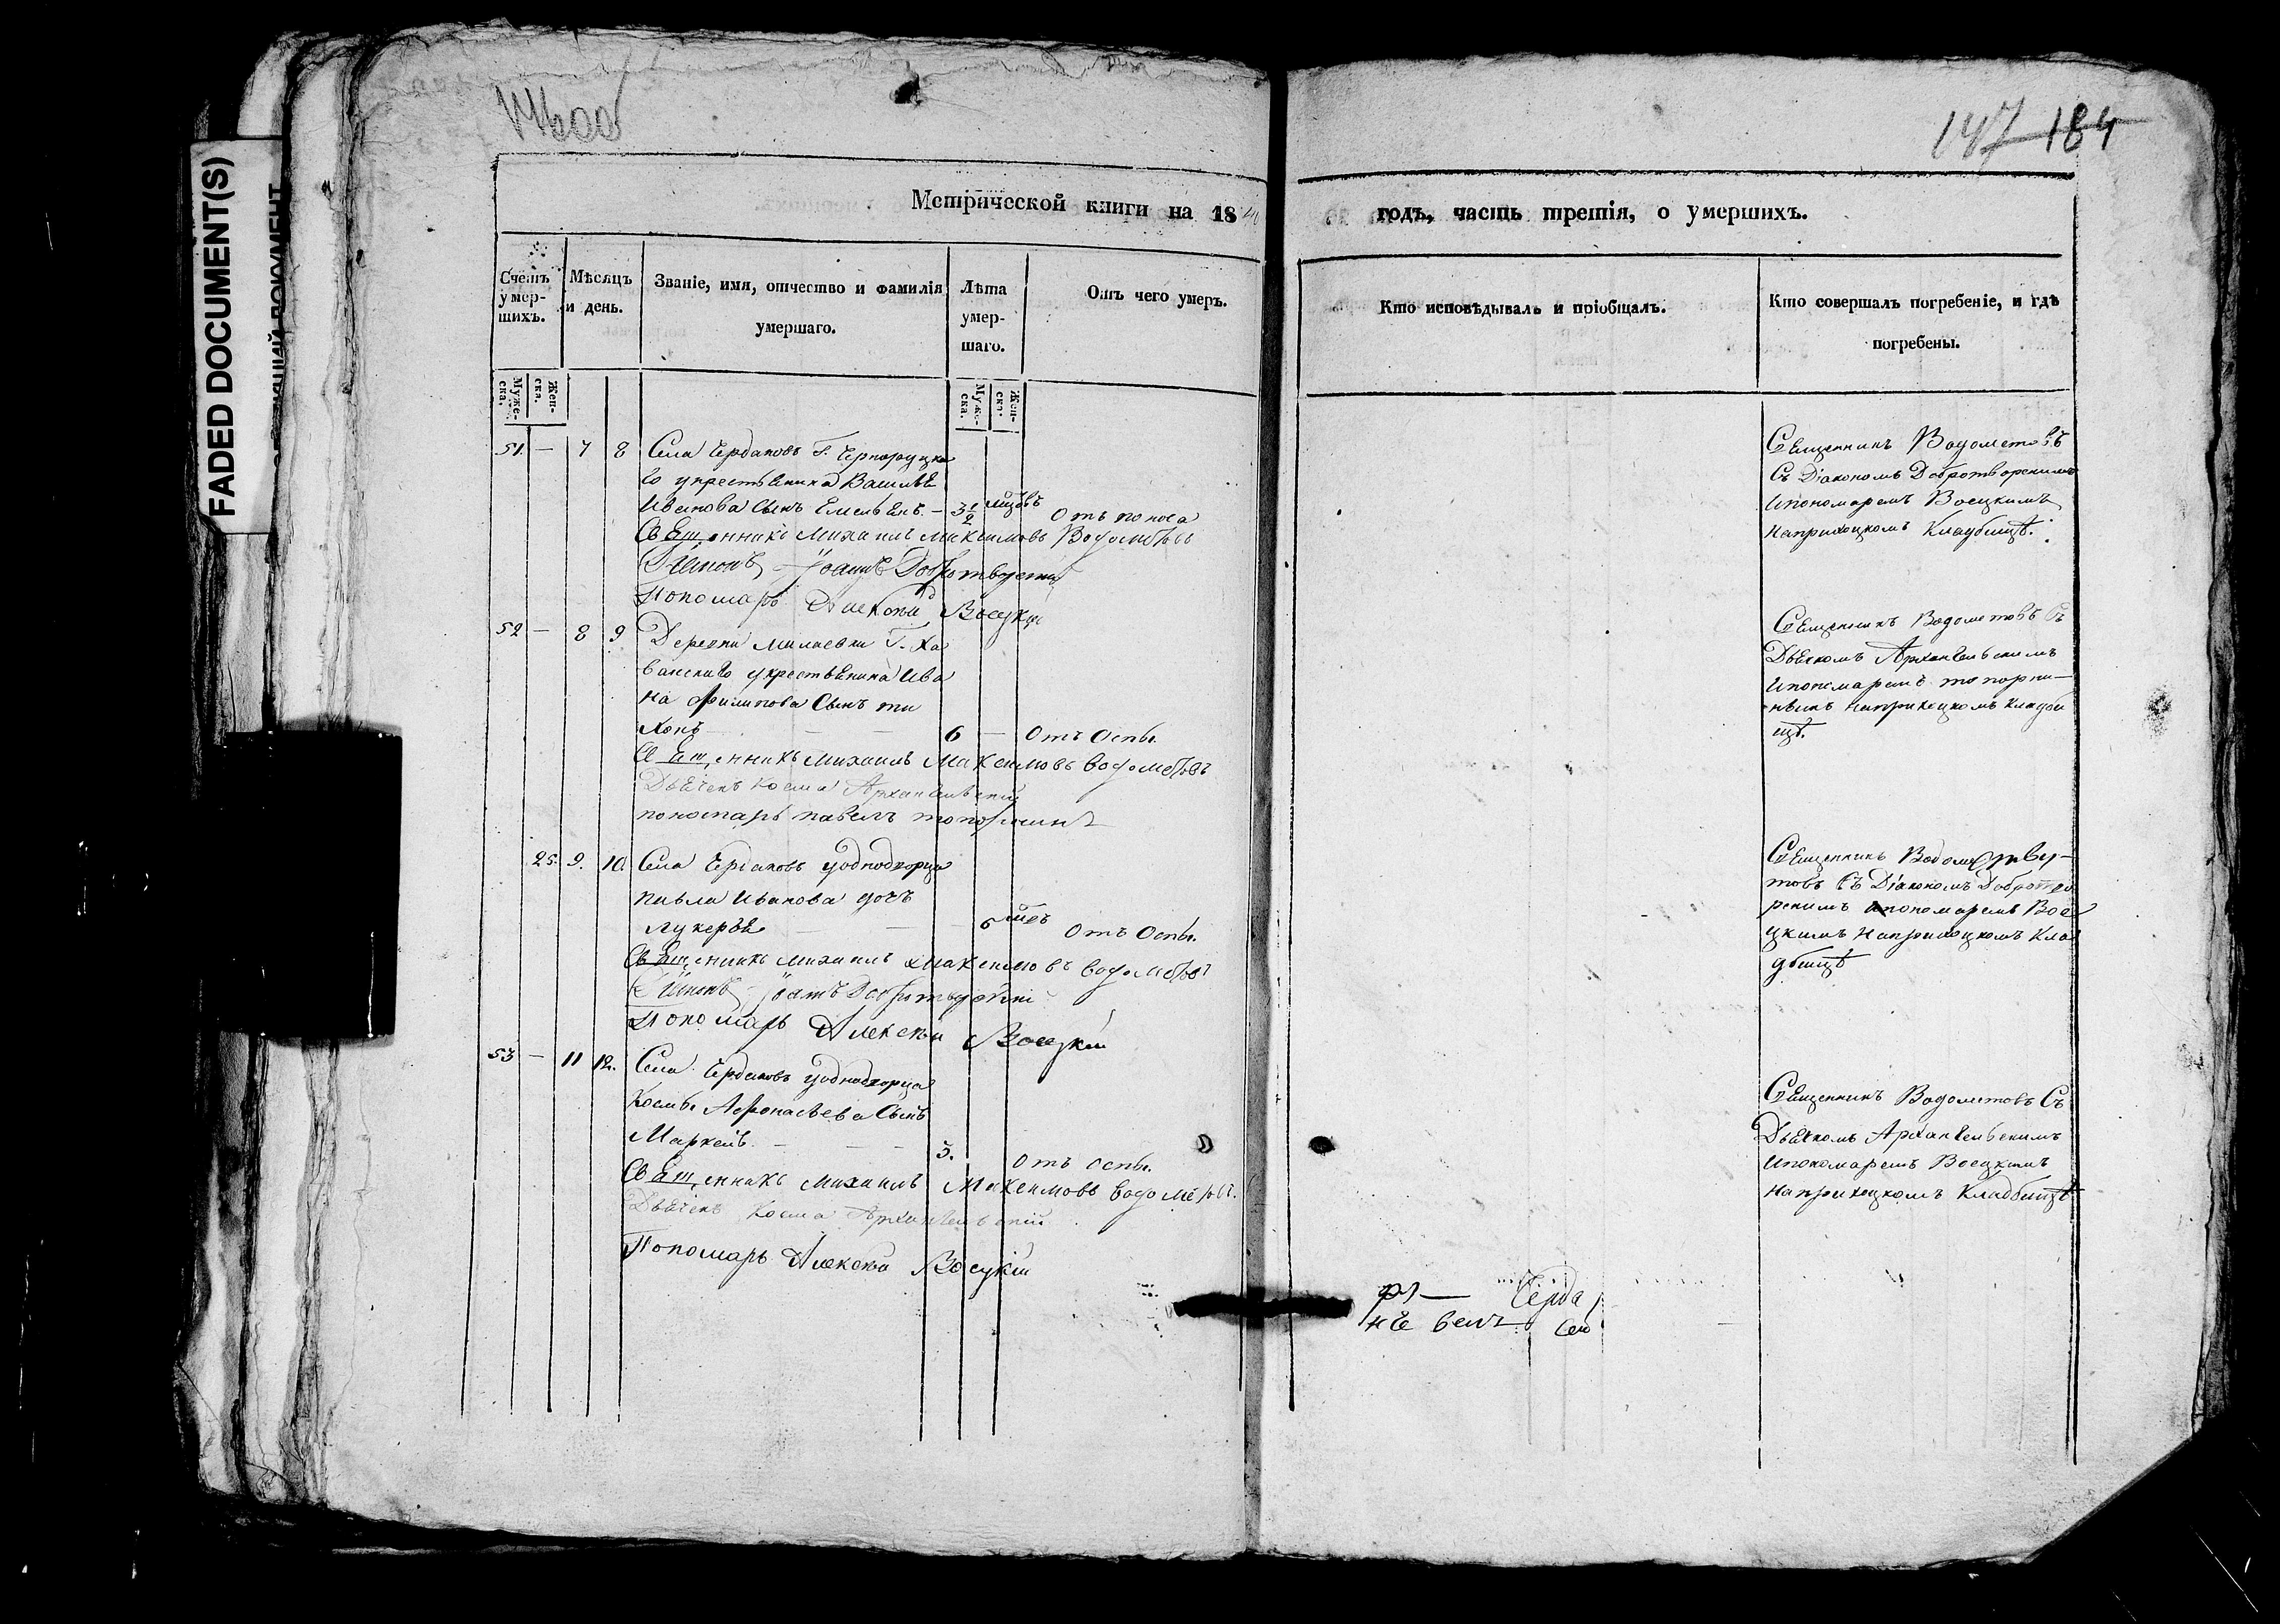 FADED DOCUMENT(S)
147 184
Метрической книги на 18
годъ, часть третія, о умершихъ.
Счетъ умер-шихъ.
Мѣсяцъ и день.
Званіе, имя, отчество и фамилія умершаго.
Лѣта умер-шаго.
Отъ чего умеръ.
Кто исповѣдывалъ и пріобщалъ.
Кто совершалъ погребеніе, и гдѣ погребены.
Муже-ска.
Жен-ска.
Муже-ска.
Жен-ска.
51 — 7 8 Села Чердаковъ Г.
крестьянина Василья
Иванова сынъ Емельянъ — 3 1/2 мцовъ Отъ поноса
Священникъ Михаилъ Максимовъ Водометовъ
Іоаннъ Добротворскій
Пономарь Алексѣй Воецкій
Священникъ Водометовъ
Съ Діакономъ Добротворскимъ
Ипономаремъ Воецкимъ
Наприходскомъ Кладбищѣ.
52 — 8 9 Деревни Милаевки Г. Хо
ванскаго крестьянина Ива
на Филипова Сынъ ти
хонъ — — 6 — Отъ Оспы.
Священникъ Михаилъ Максимовъ Водометовъ
Дьячекъ Косма Архангельскій
пономарь павелъ топорнинъ
Священникъ Водометовъ Съ
Дьячкомъ Архангельскимъ
Ипономаремъ топорни—
нымъ Наприходскомъ кладби
щѣ.
25. 9. 10. Села Чердаковъ Уоднодворца
павла Иванова дочь
лукерья — — 6 мцъ Отъ Оспы.
Священникъ Михаилъ Максимовъ Водометовъ
Іоаннъ Добротворскій
Пономарь Алексѣй Воецкій
Священникъ Водоме
товъ Съ Діакономъ Добротво
рскимъ ипономаремъ Вое
цкимъ Наприходскомъ Кла
дбищѣ
53 — 11 12. Села Чердаковъ Уоднодворца
Космы Афонасьева Сынъ
Маркелъ — — — 3. Отъ Оспы.
Священникъ Михаилъ Максимовъ Водометовъ.
Дьячекъ Косма Архангельскій
Пономарь Алексѣй Воецкій
Священникъ Водометовъ Съ
Дьячкомъ Архангельскимъ
Ипономаремъ Воецкимъ
Наприходскомъ Кладбищѣ